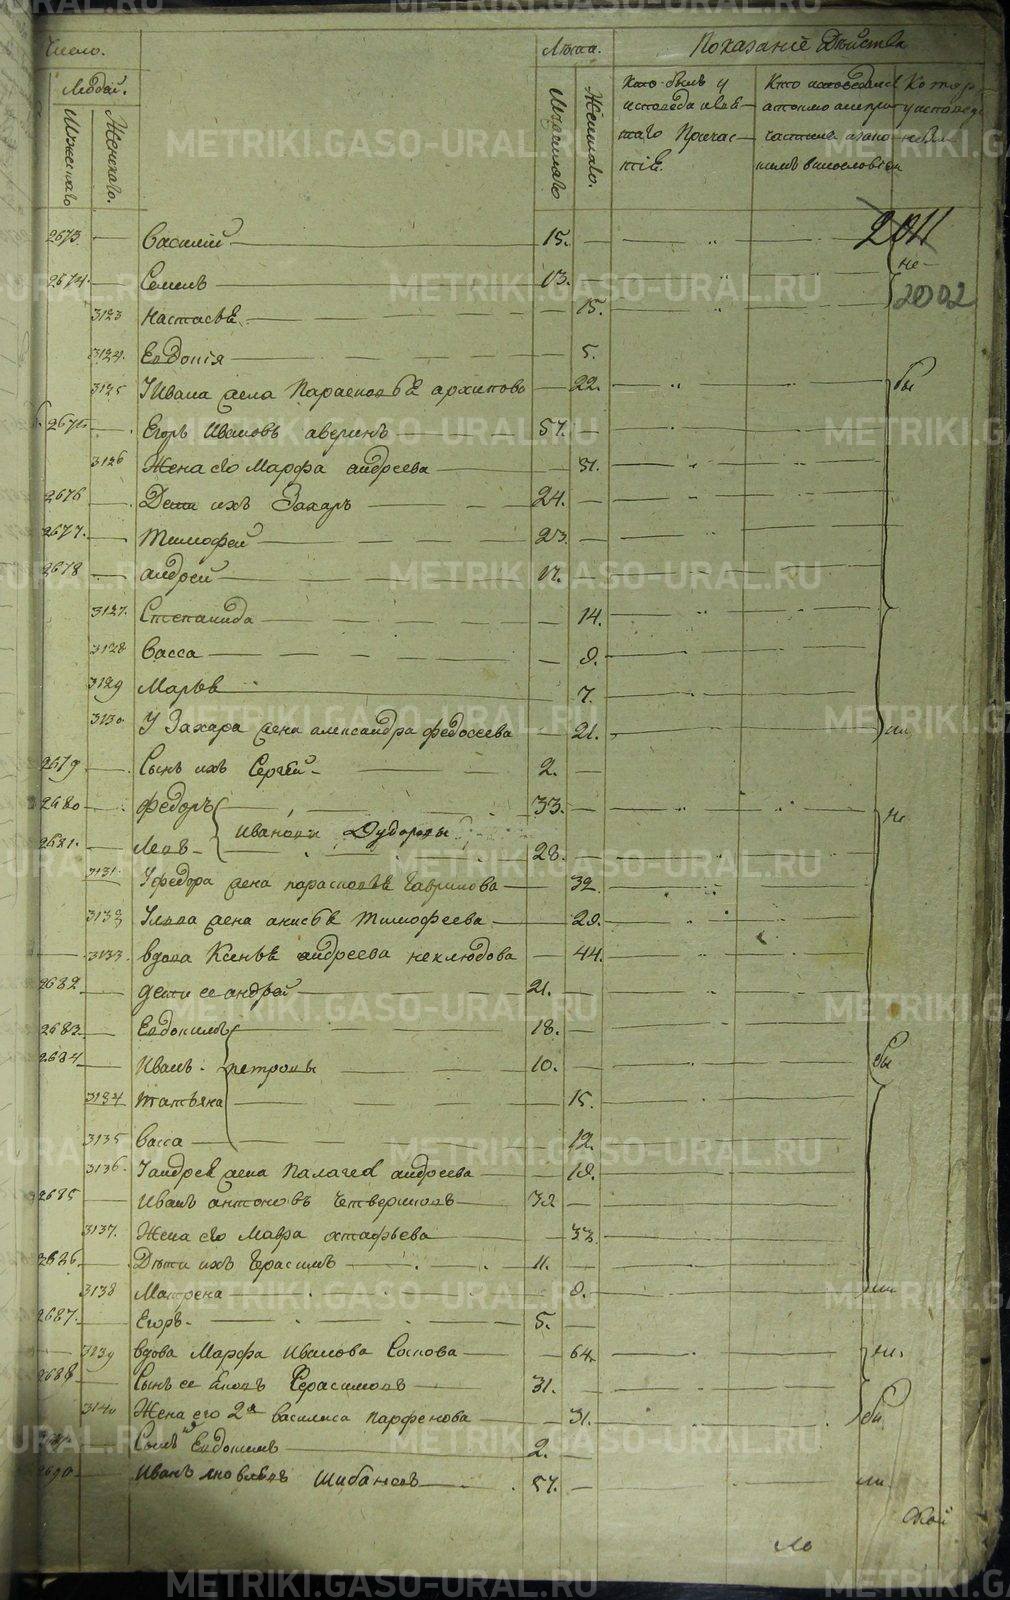 Число.
Лѣта.
Показаніе Дѣйства
Людей.
Мужескаго
Женскаго.
Мужескаго
Женскаго.
Кто былъ у
исповеди и свя
таго Причас
тіѣ.
METRIKI.GASO-URAL.RU
2673 Василий 15.
2011
не
2674. Семенъ 13.
2002
3123 Настасьѣ 15.
3124. Евдокія 5.
3125 У Ивана жена Парасковьѣ архипова 22. бы
2675 Егоръ Ивановъ аверинъ 57.
3126 Жена его Марфа андреева 51.
2676 Дети ихъ Захаръ 24.
2677. Тимофей 23.
2678 андрей 17.
3127. Степанида 14.
3128 Васса 9.
3129 Марьѣ 7.
3130 У Захара жена александра федосеева 21. ли
2679 Сынъ ихъ Сергѣй 2.
2680 федоръ 33. не
Ивановы Дудоровы
2681. Левъ 28.
3131. У федора жена парасковьѣ Гаврилова 32
3132 У лва жена анисьѣ Тимофеева 28.
3133. вдова Ксеньѣ андреева неклюдова 44.
2682 дети ее андрей 21.
2683 Евдокимъ 18.
2684 Иванъ петровы 10. бы
3134 татьяна 15.
3135 васса 12.
3136. У андреѣ жена Палагеѣ андреева 18.
2685 Иванъ антоновъ Четвериковъ 38
3137. Жена его Мавра астафьева 33.
2686 Дѣти ихъ Герасимъ 11.
3138 Матрена 8. ли
2687. Егоръ 5.
3139 вдова Марфа Иванова Сопова 64. не.
2688 Сынъ ее Яковъ Герасимовъ 31.
3140 Жена его 2я василиса парфенова 31. бы
Сынъ Евдокимъ 2.
2690 Иванъ яковлевъ Шибановъ 57. ли